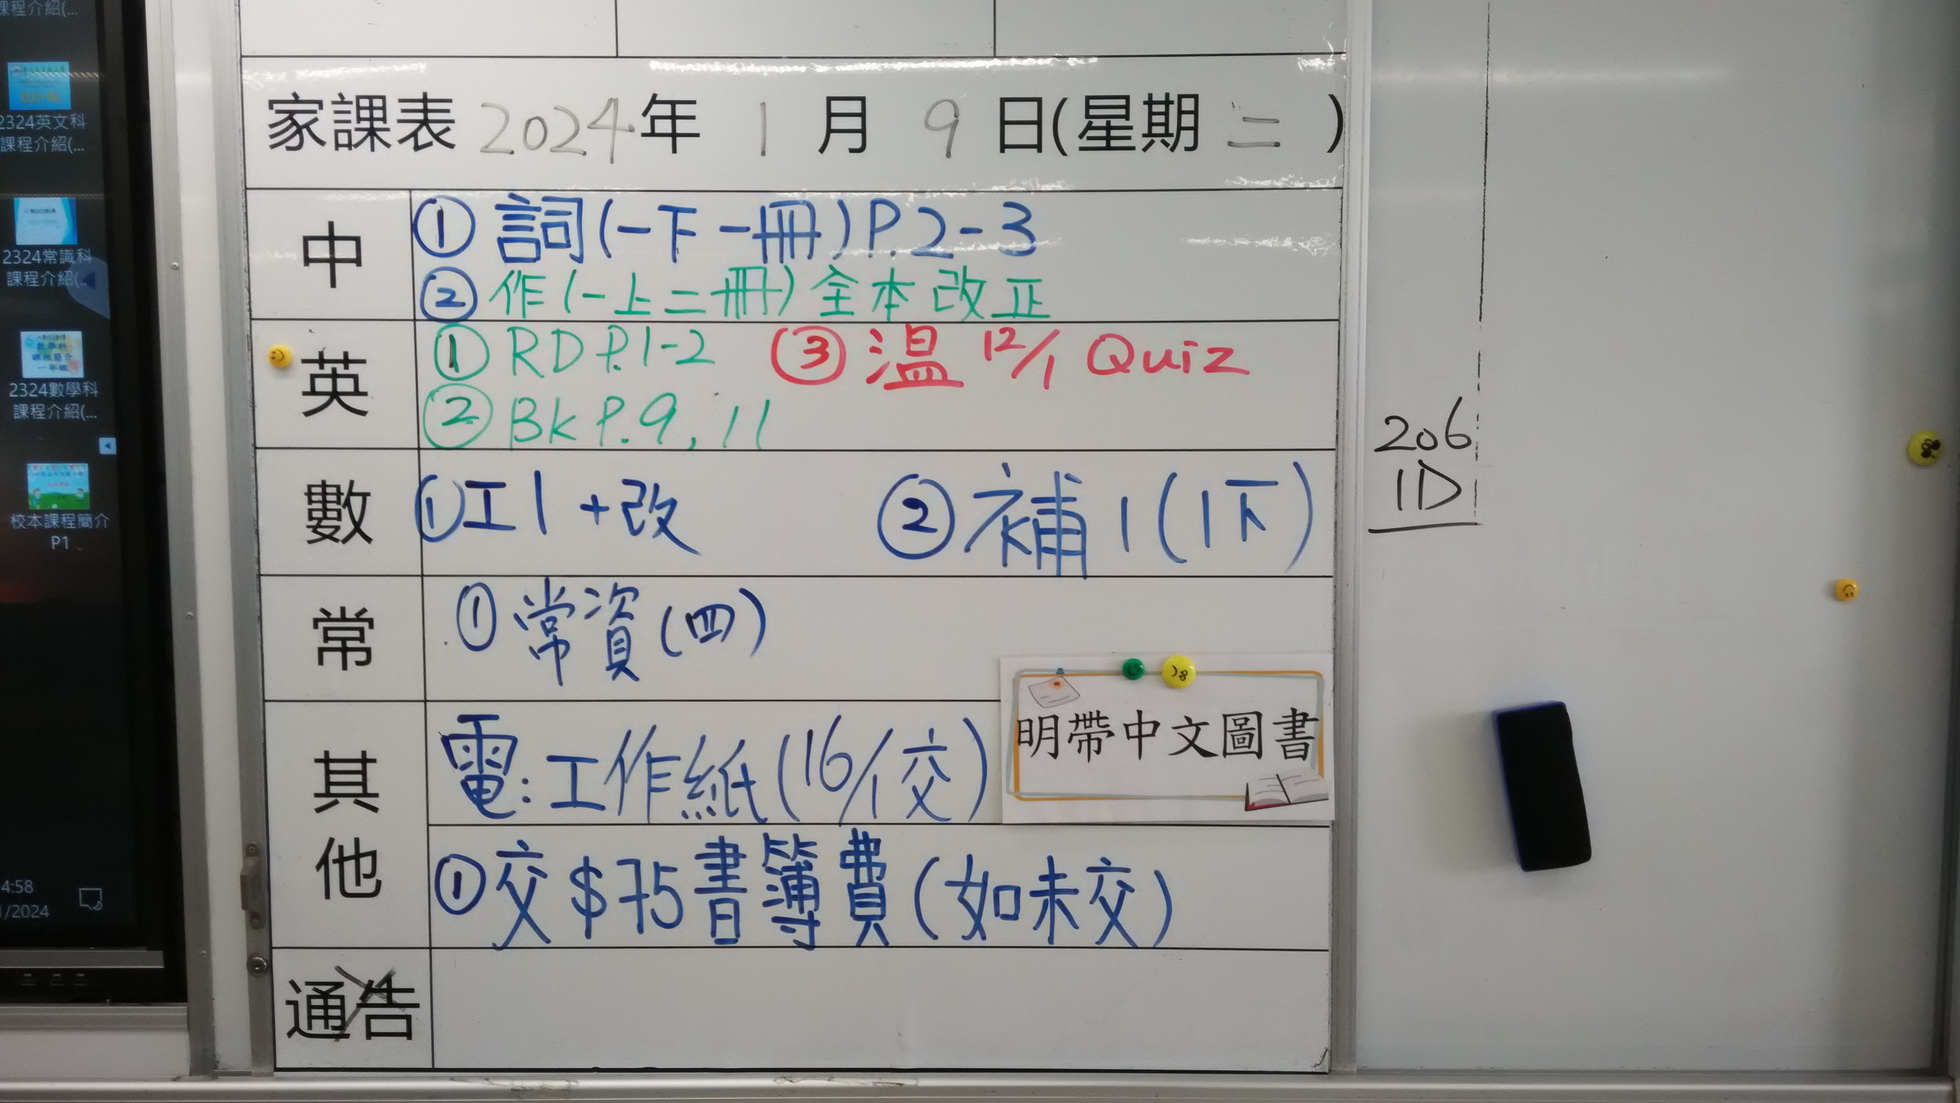 課程介紹(...
2324英文科
課程介紹(...
2324常識科
課程介紹(...
2324數學科
課程介紹(...
校本課程簡介
P1
4:58
1/2024
家課表 2024年 1月 9日(星期二)
中
① 詞(一下一冊)P.2-3
② 作(一上二冊)全本改正
英
① RD P.1-2 ③ 溫 12/1 Quiz
② BK P.9, 11
數
① 工1+改 ② 補1(1下)
常
① 常資(四)
其他
電:工作紙(16/1交)
明帶中文圖書
① 交$75書簿費(如未交)
通告
206
1D